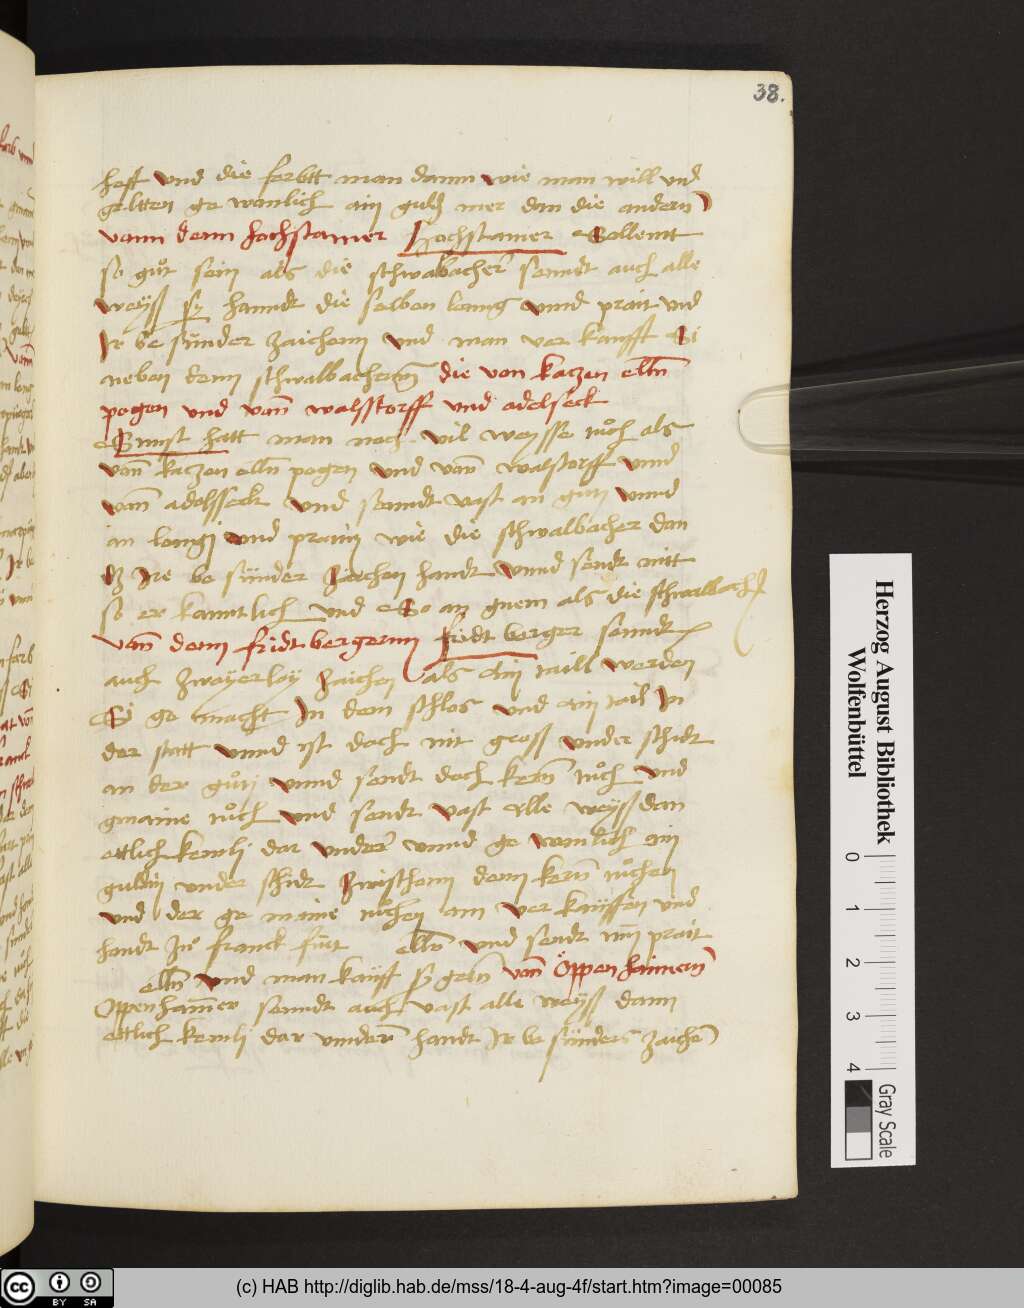 38.
hafft vnd die ferbtt man dann wie man will vnd
geltten ge wonlich ain guld mer dan die andern
vonn denn hochstamer Hochstamer Sollentt
so guͦt sein als die schwabacher senndt auch alle
weyss sy handt die selben lanng vnnd prait vnd
Ir be sunder zaichenn vnd man ver kaufft Si
neben denn schwalbachernn die von kaczen elln
pogen vnd vonn walsstorff vnd adelseck
Sunst hatt man noch vil weysse tuͦch als
vonn kaczen elln pogen vnd vonn walstorff vnnd
vonn adelsseck vnd senndt vast an guti vnnd
an lengi vnd praitti wie die schwalbacher dan
dz Ire be sunder zaichen handt vnnd sendt nitt
so er kanntlich vnd So an gnem als die schwalbach
vonn denn fridt bergernn fridt berger senndt
auch zwayerlay zaichen als ain taill werden
Si ge macht In dem schlos vnd ain tail In
der statt vnnd ist doch nit gross vnder schidt
an der guͦti vnnd sendt doch kern tuͦch vnd
gmaine tuͦch vnd sendt vast alle weyss dan
ettlich kemlj dar vnder vnnd ge wonlich ain
guldin vnder schidt zwischenn denn kern tuͦchen
vnd der ge maine tuͦchen am ver kauffen vnd
handt In franck furt elln vnd sendt prait
elln vnd man kaufft sy geln vonn Oppenhaimern
Oppenhaimer senndt auch vast alle weyss dann
ettlich kemlj dar vnnder handt Ir be sunders zaichen
Herzog August Bibliothek
Wolfenbüttel
0 1 2 3 4
Gray Scale
cc BY SA
(c) HAB http://diglib.hab.de/mss/18-4-aug-4f/start.htm?image=00085